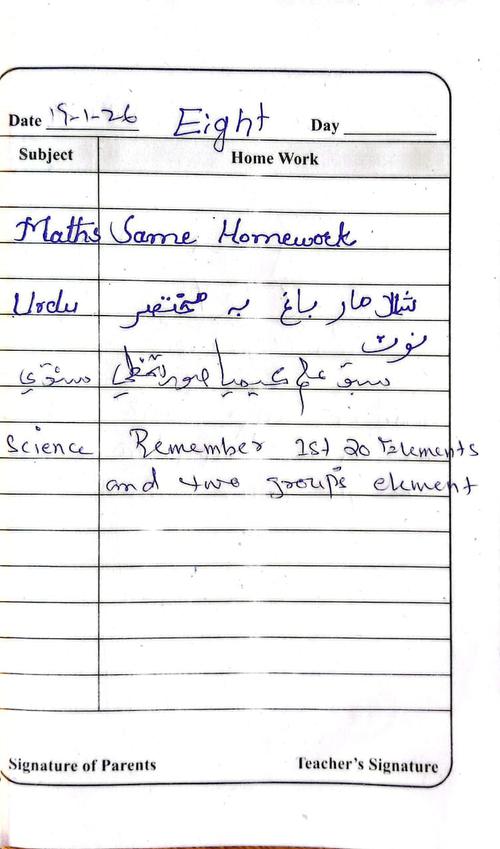 Date 19-1-26 Eight Day
Subject Home Work
Maths Same Homework
Urdu شالا مار باغ پہ مختصر
نوٹ
سبق علم کیمیا اور
Science Remember 1st 20 Elements
and two groups element
Signature of Parents Teacher's Signature